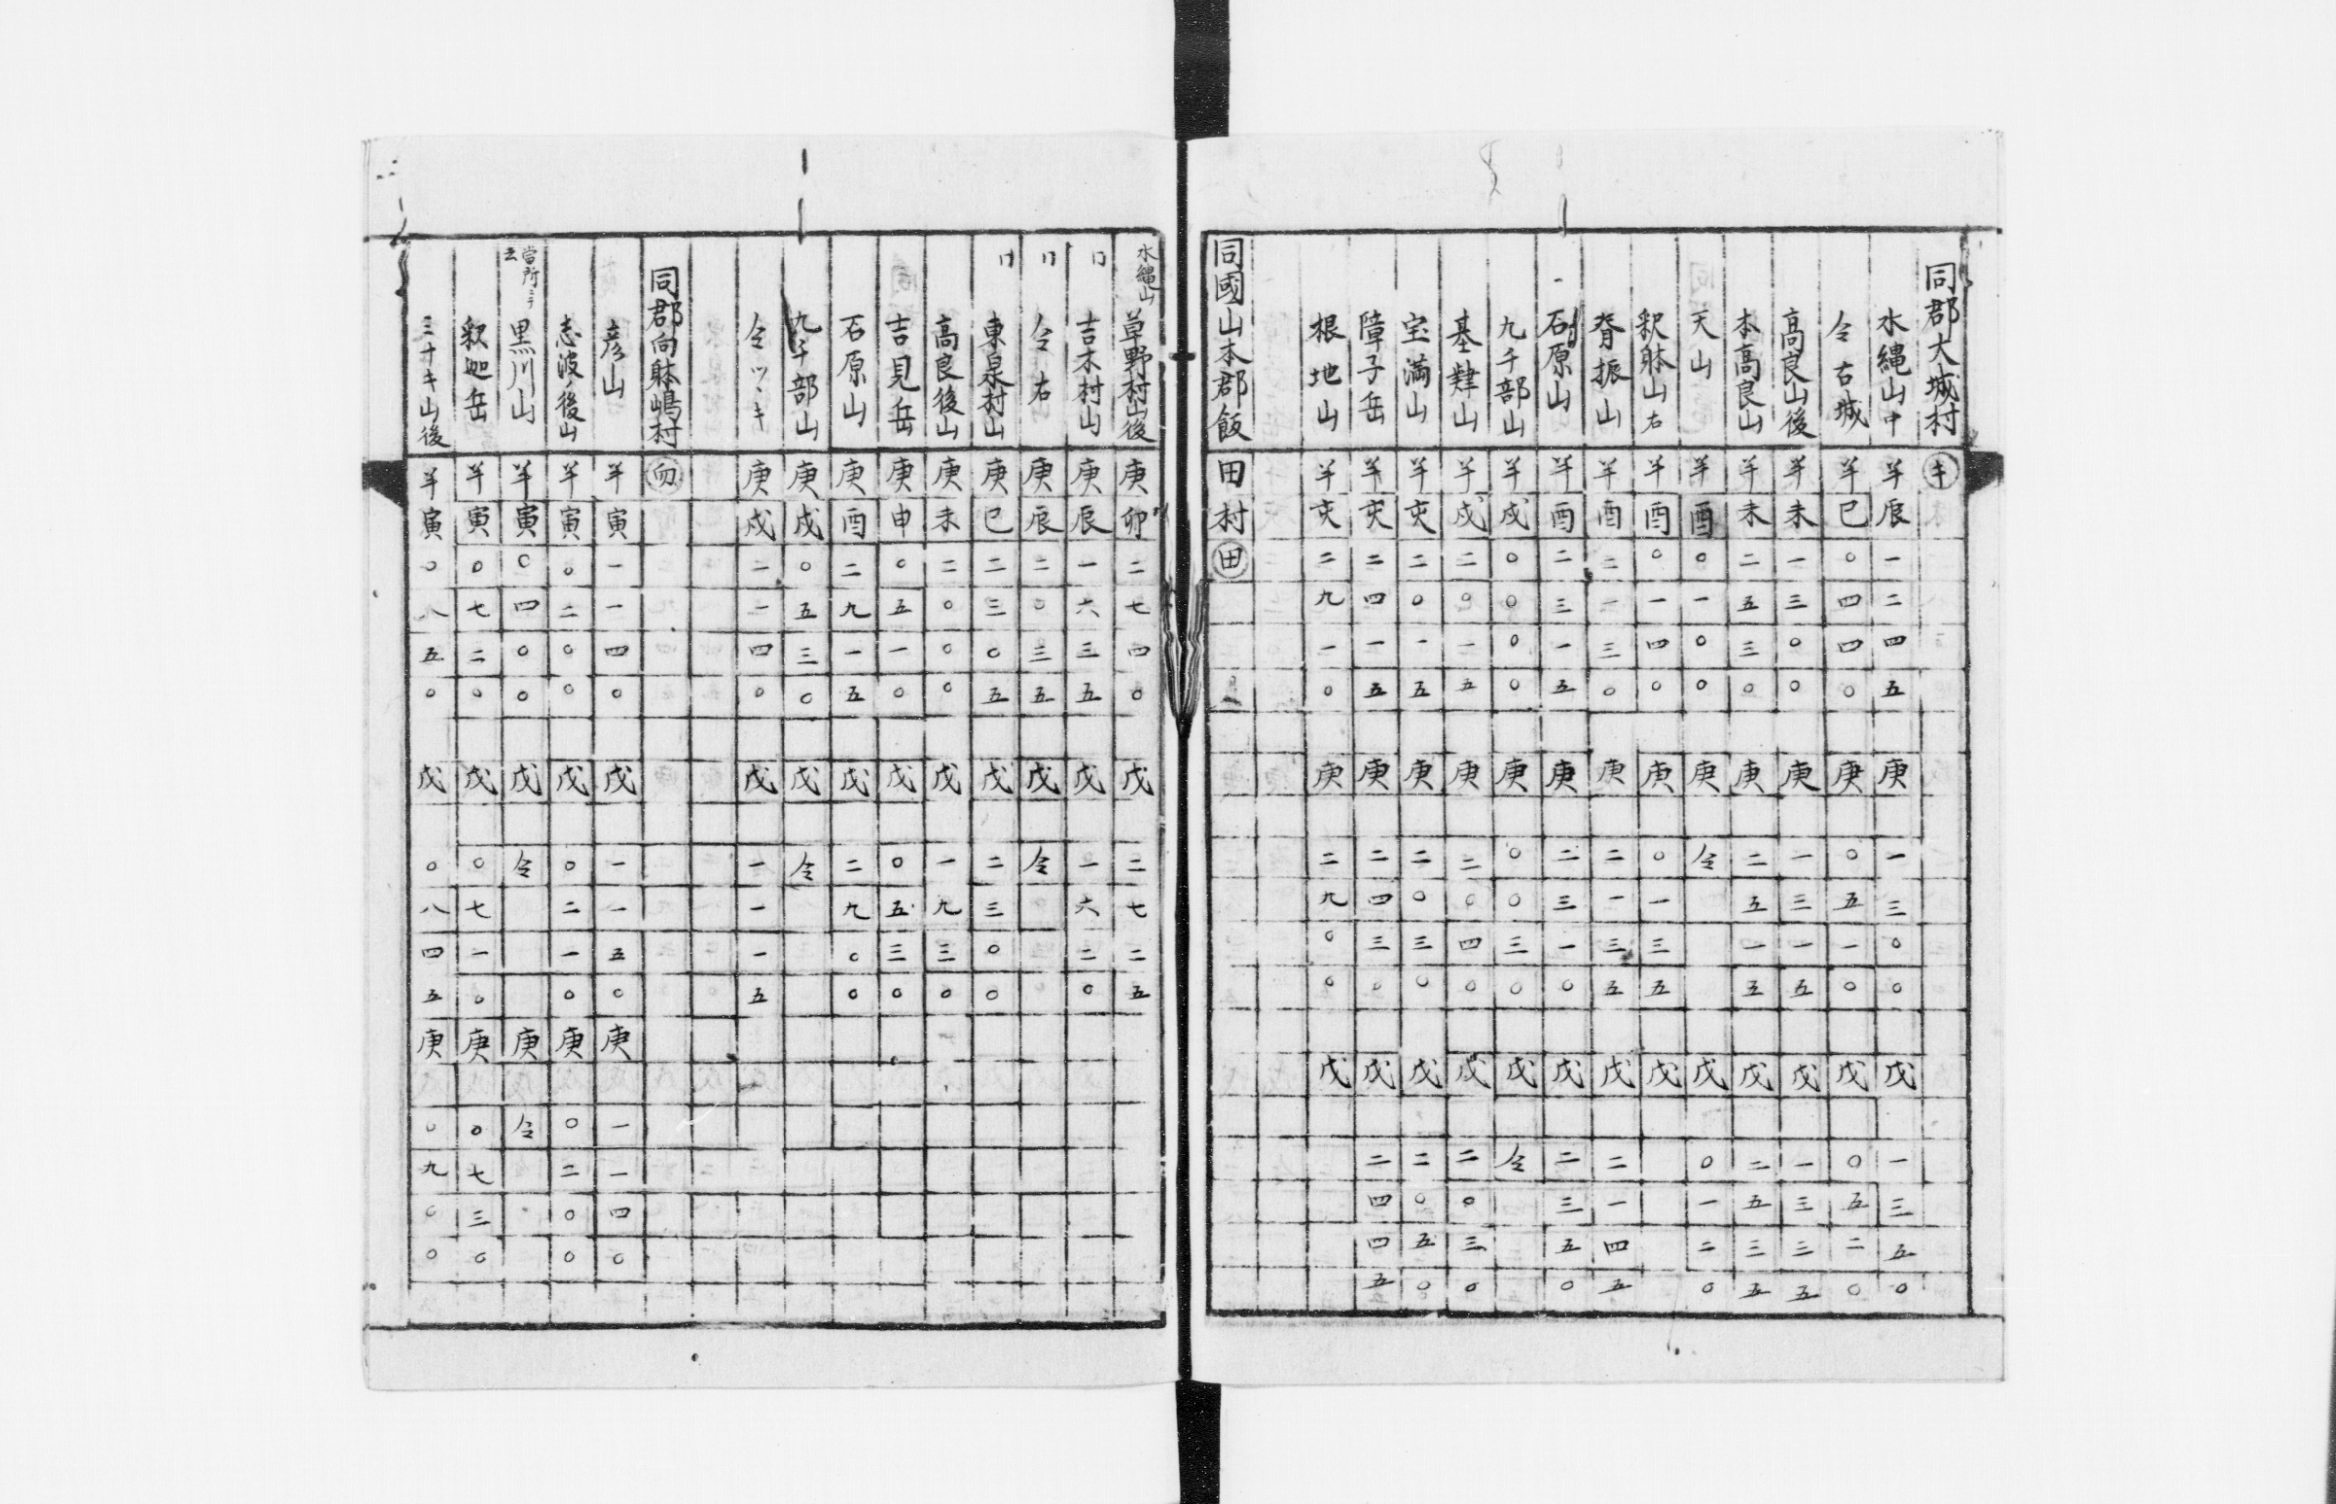 同郡大城村 キ
水縄山中 羊 辰 一 二 四 五 庚 一 三 〇 〇 戊 一 三 五 〇
仝 古城 羊 巳 〇 四 四 〇 庚 〇 五 一 〇 戊 〇 五 二 〇
高良山後 羊 未 一 三 〇 〇 庚 一 三 一 五 戊 一 三 三 五
本高良山 羊 未 二 五 三 〇 庚 二 五 一 五 戊 二 五 三 五
天山 羊 酉 〇 一 〇 〇 庚 仝 戊 〇 一 二 〇
釈躰山右 羊 酉 〇 一 四 〇 庚 〇 一 三 五 戊
脊振山 羊 酉 二 一 三 〇 庚 二 一 三 五 戊 二 一 四 五
石原山 羊 酉 二 三 一 五 庚 二 三 一 〇 戊 二 三 五 〇
九千部山 羊 戌 〇 〇 〇 〇 庚 〇 〇 三 〇 戊 仝
基肄山 羊 戌 二 〇 一 五 庚 二 〇 四 〇 戊 二 〇 三 〇
宝満山 羊 亥 二 〇 一 五 庚 二 〇 三 〇 戊 二 〇 五 〇
障子岳 羊 亥 二 四 一 五 庚 二 四 三 〇 戊 二 四 四 五
根地山 羊 亥 二 九 一 〇 庚 二 九 〇 〇 戊
同國山本郡飯田村 田
水縄山 草野村山後 庚 卯 二 七 四 〇 戊 二 七 二 五
〃 吉木村山 庚 辰 一 六 三 五 戊 一 六 二 〇
〃 仝 右 庚 辰 二 〇 三 五 戊 仝
〃 東泉村山 庚 巳 二 三 〇 五 戊 二 三 〇 〇
高良後山 庚 未 二 〇 〇 〇 戊 一 九 三 〇
吉見岳 庚 申 〇 五 一 〇 戊 〇 五 三 〇
石原山 庚 酉 二 九 一 五 戊 二 九 〇 〇
九千部山 庚 戌 〇 五 三 〇 戊 仝
仝ツヽキ 庚 戌 二 一 四 〇 戊 一 一 一 五
同郡向躰嶋村
彦山 羊 寅 一 一 四 〇 戊 一 一 五 〇 庚 一 一 四 〇
志波ノ後山 羊 寅 〇 二 〇 〇 戊 〇 二 一 〇 庚 〇 二 〇 〇
當所ニテ云 黒川山 羊 寅 〇 四 〇 〇 戊 仝 庚 仝
釈迦岳 羊 寅 〇 七 二 〇 戊 〇 七 一 〇 庚 〇 七 三 〇
三十キ山後 羊 寅 〇 八 五 〇 戊 〇 八 四 五 庚 〇 九 〇 〇